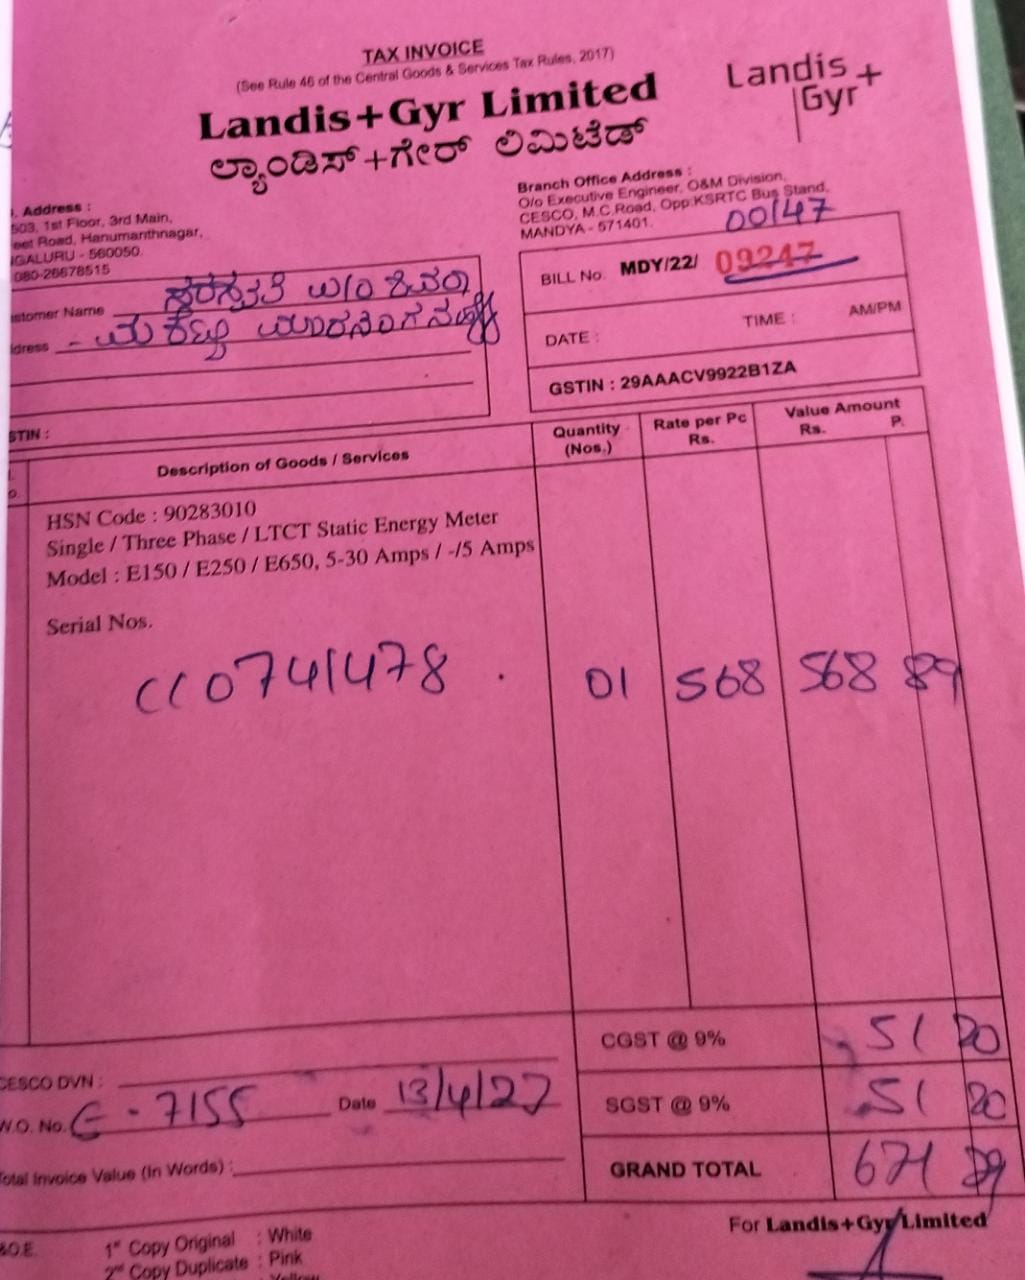 TAX INVOICE
(See Rule 46 of the Central Goods & Services Tax Rules, 2017)
Landis+Gyr Limited
ಲ್ಯಾಂಡಿಸ್+ಗೇರ್ ಲಿಮಿಟೆಡ್
Landis+
Gyr
Address :
503, 1st Floor, 3rd Main,
eet Road, Hanumanthnagar,
GALURU - 560050.
080-26678515
Branch Office Address :
O/o Executive Engineer, O&M Division,
CESCO, M.C.Road, Opp:KSRTC Bus Stand,
MANDYA - 571401.
00147
BILL No. MDY/22/ 09247
DATE : TIME : AM/PM
GSTIN : 29AAACV9922B1ZA
stomer Name W/O
dress
STIN :
Description of Goods / Services
Quantity (Nos.)
Rate per Pc Rs.
Value Amount Rs. P.
HSN Code : 90283010
Single / Three Phase / LTCT Static Energy Meter
Model : E150 / E250 / E650, 5-30 Amps / -/5 Amps
Serial Nos.
0741478 01 568 568 89
CGST @ 9% 51 20
SGST @ 9% 51 20
GRAND TOTAL 671 29
CESCO DVN :
W.O. No. 7155 Date 13/4/22
Total Invoice Value (In Words) :
For Landis+Gyr Limited
&O.E.
1st Copy Original : White
2nd Copy Duplicate : Pink